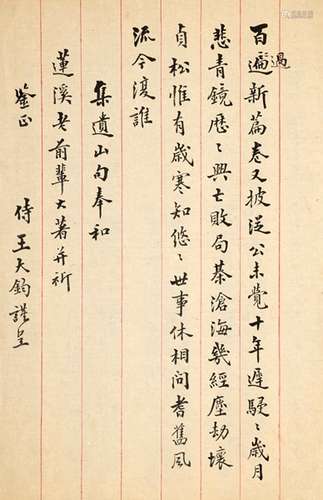 百遍過新篇卷又披從公未覺十年遲駸〻歲月
悲青鏡歷〻興亡敗局棊滄海幾經塵劫壞
貞松惟有歲寒知悠〻世事休相問耆舊風
流今復誰
集遺山句奉和
蓮溪老前輩大著并祈
鑒正 侍王大鈞謹呈